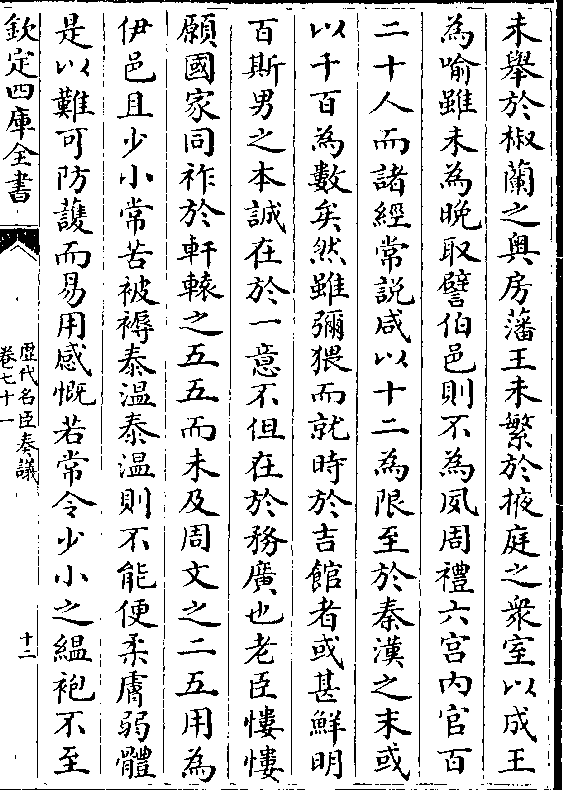 未舉於椒蘭之奥房藩王未繁於掖庭之衆室以成王
為喻雖未為晚取譬伯邑則不為夙周禮六宫内官百
二十人而諸經常説咸以十二為限至於秦漢之末或
以千百為數矣然雖彌猥而就時於吉館者或甚鮮明
百斯男之本誠在於一意不但在於務廣也老臣慺慺
願國家同祚於軒轅之五五而未及周文之二五用為
伊邑且少小常苦被褥泰温泰温則不能便柔膚弱體
是以難可防護而易用感慨若常令少小之緼袍不至
欽定四庫全書
歴代名臣奏議
卷七十一
十二